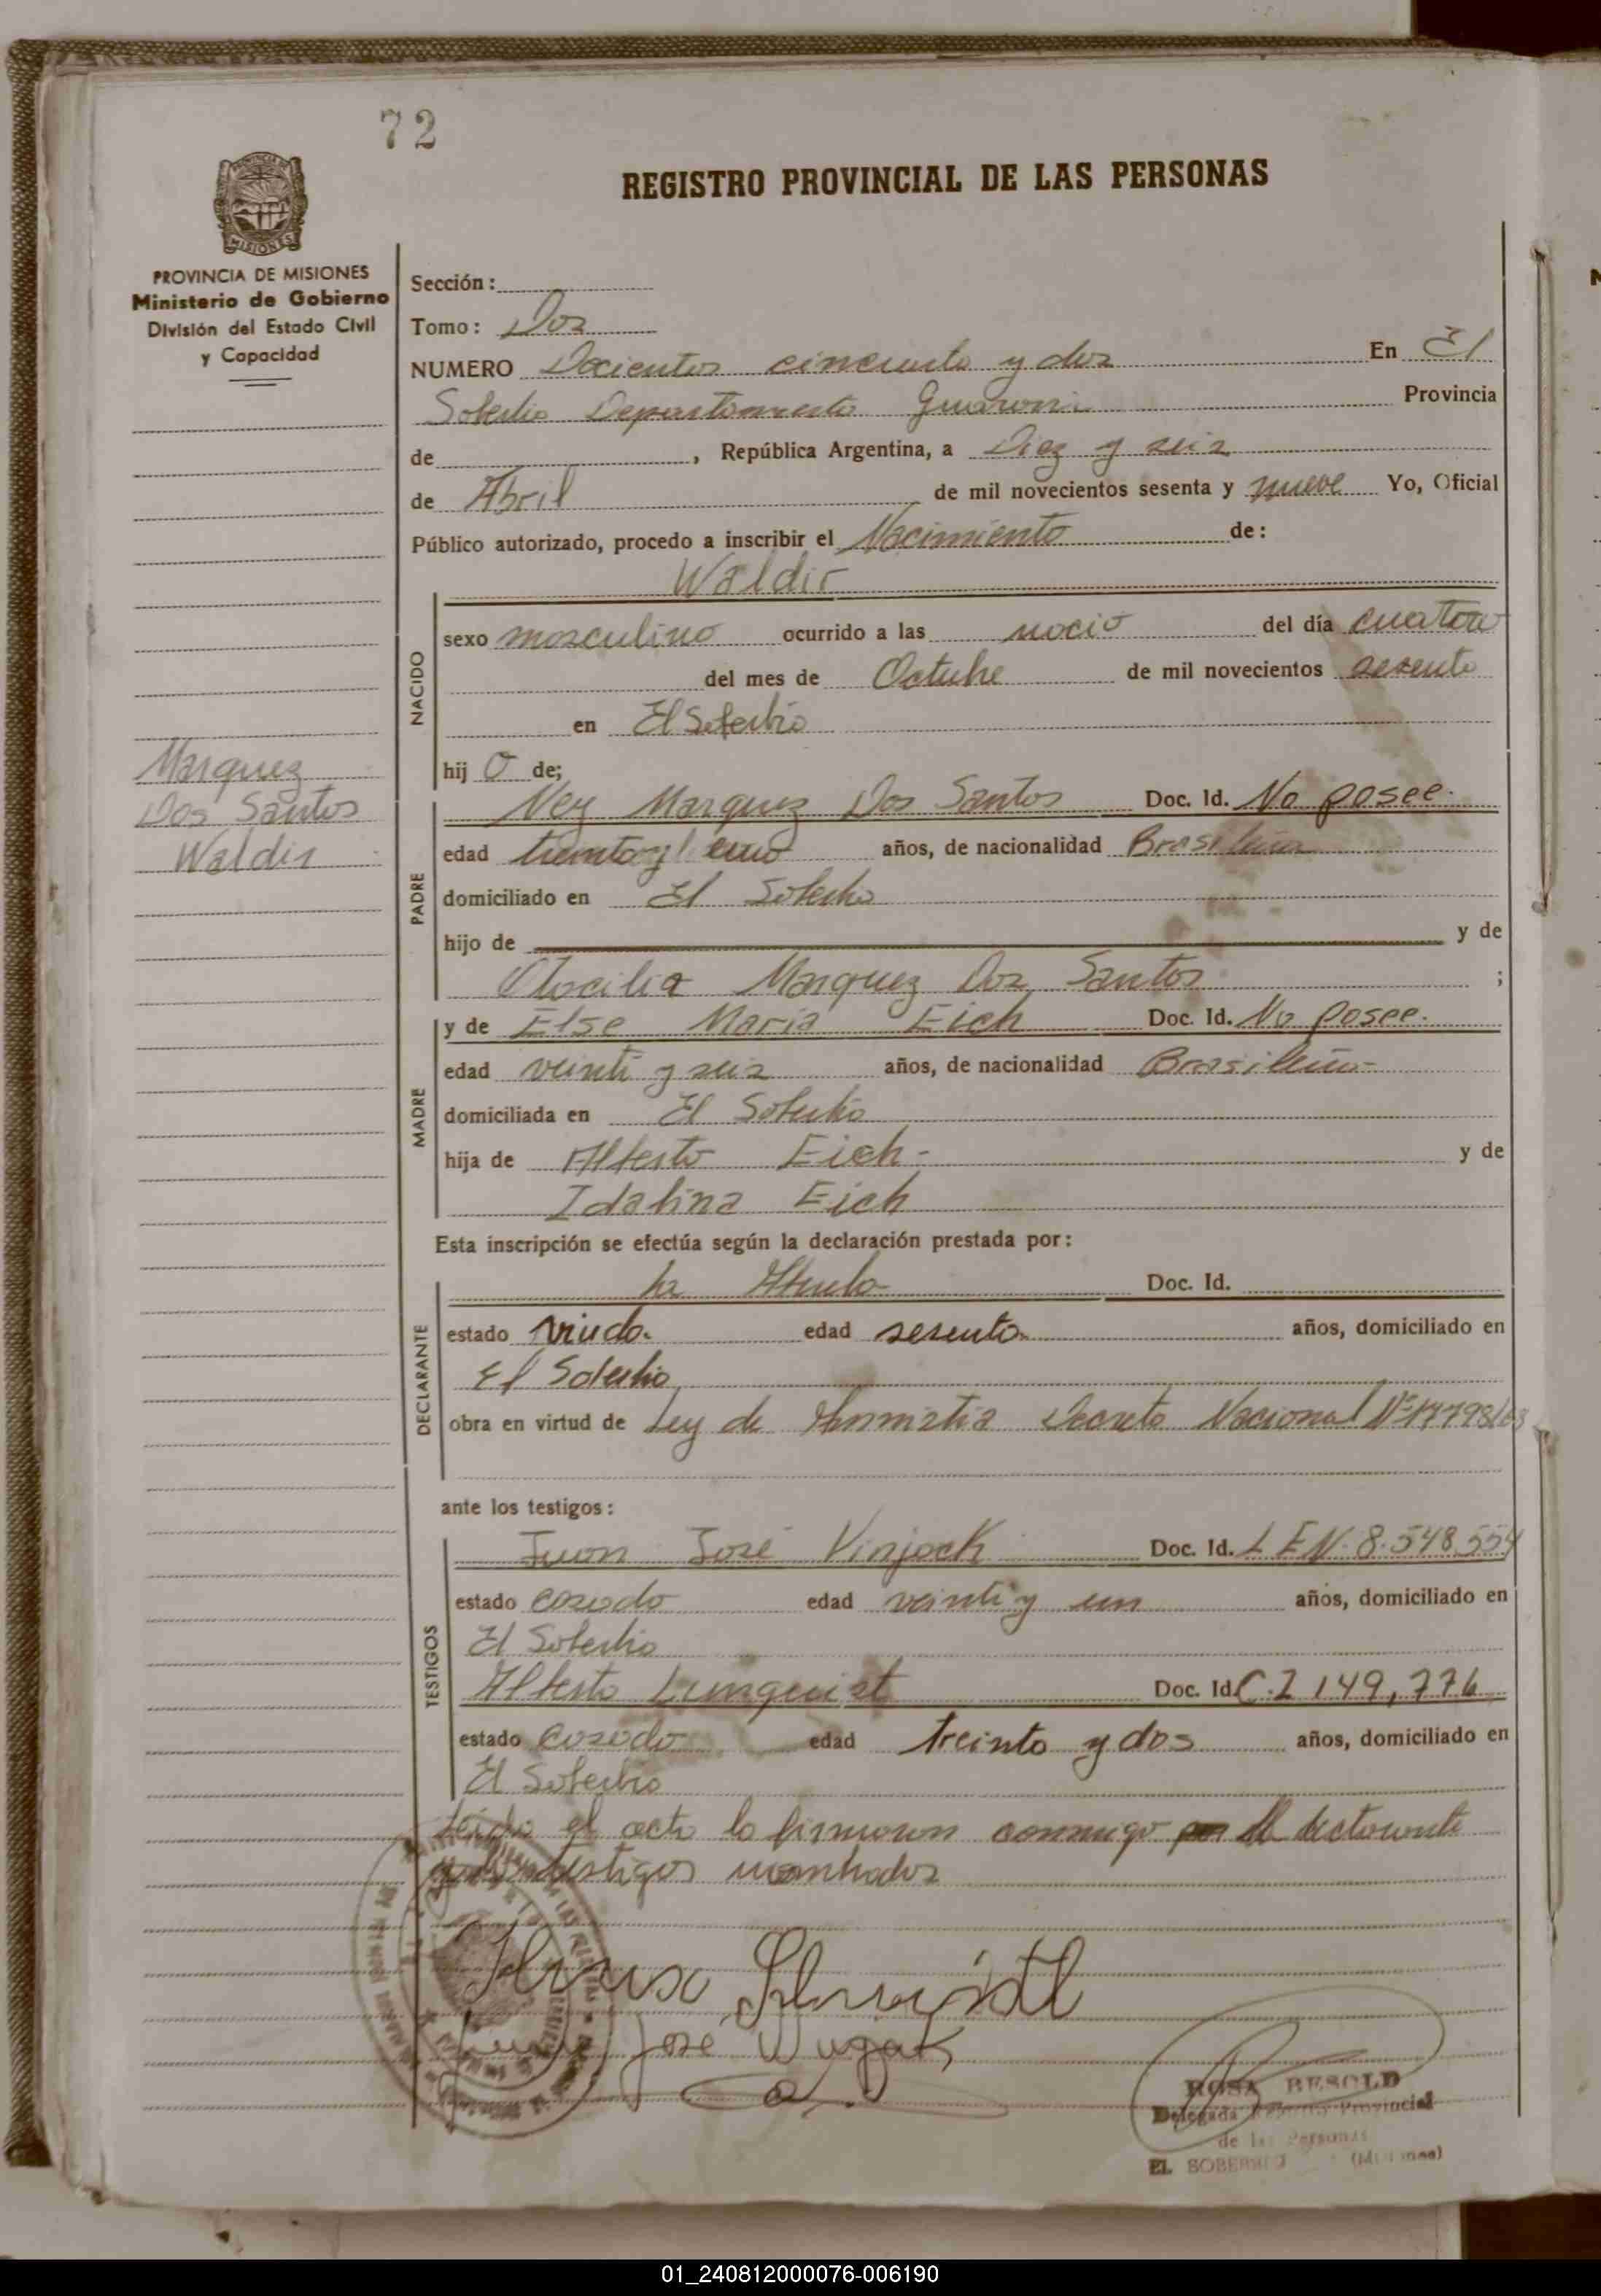 72
REGISTRO PROVINCIAL DE LAS PERSONAS
MISIONES
PROVINCIA DE MISIONES
Ministerio de Gobierno
División del Estado Civil
y Capacidad
Sección:
Tomo: Dos
NUMERO Docientos cincuenta y dos En El
Soberbio Departamento Guarani Provincia
de , República Argentina, a Diez y seis
de Abril de mil novecientos sesenta y nueve Yo, Oficial
Público autorizado, procedo a inscribir el Nacimiento de:
Waldir
NACIDO
sexo masculino ocurrido a las nació del día cuatro
del mes de Octubre de mil novecientos sesenta
en El Soberbio
hij o de;
Marquez
Dos Santos
Waldir
PADRE
Ney Marquez Dos Santos Doc. Id. No posee.
edad treinta y uno años, de nacionalidad Brasileña
domiciliado en El Soberbio
hijo de y de
Marquez Dos Santos ;
MADRE
y de Else Maria Eich Doc. Id. No posee.
edad veinti y seis años, de nacionalidad Brasileña
domiciliada en El Soberbio
hija de Alberto Eich y de
Idalina Eich
Esta inscripción se efectúa según la declaración prestada por:
DECLARANTE
la Abuela Doc. Id.
estado viuda. edad sesenta años, domiciliado en
El Soberbio
obra en virtud de Ley de Amnistia Decreto Nacional Nº 17798/68
ante los testigos:
TESTIGOS
Juan José Vinjack Doc. Id. L E N. 8.548.554
estado casado edad veinti y un años, domiciliado en
El Soberbio
Alberto Lunquist Doc. Id. C.I 149,776
estado casado edad treinta y dos años, domiciliado en
El Soberbio
Leida el acta la firmaron conmigo por el declarante
testigos nombrados
José
ROSA BESOLD
Delegada Provincial
de las Personas
EL SOBERBIO (Misiones)
01_240812000076-006190